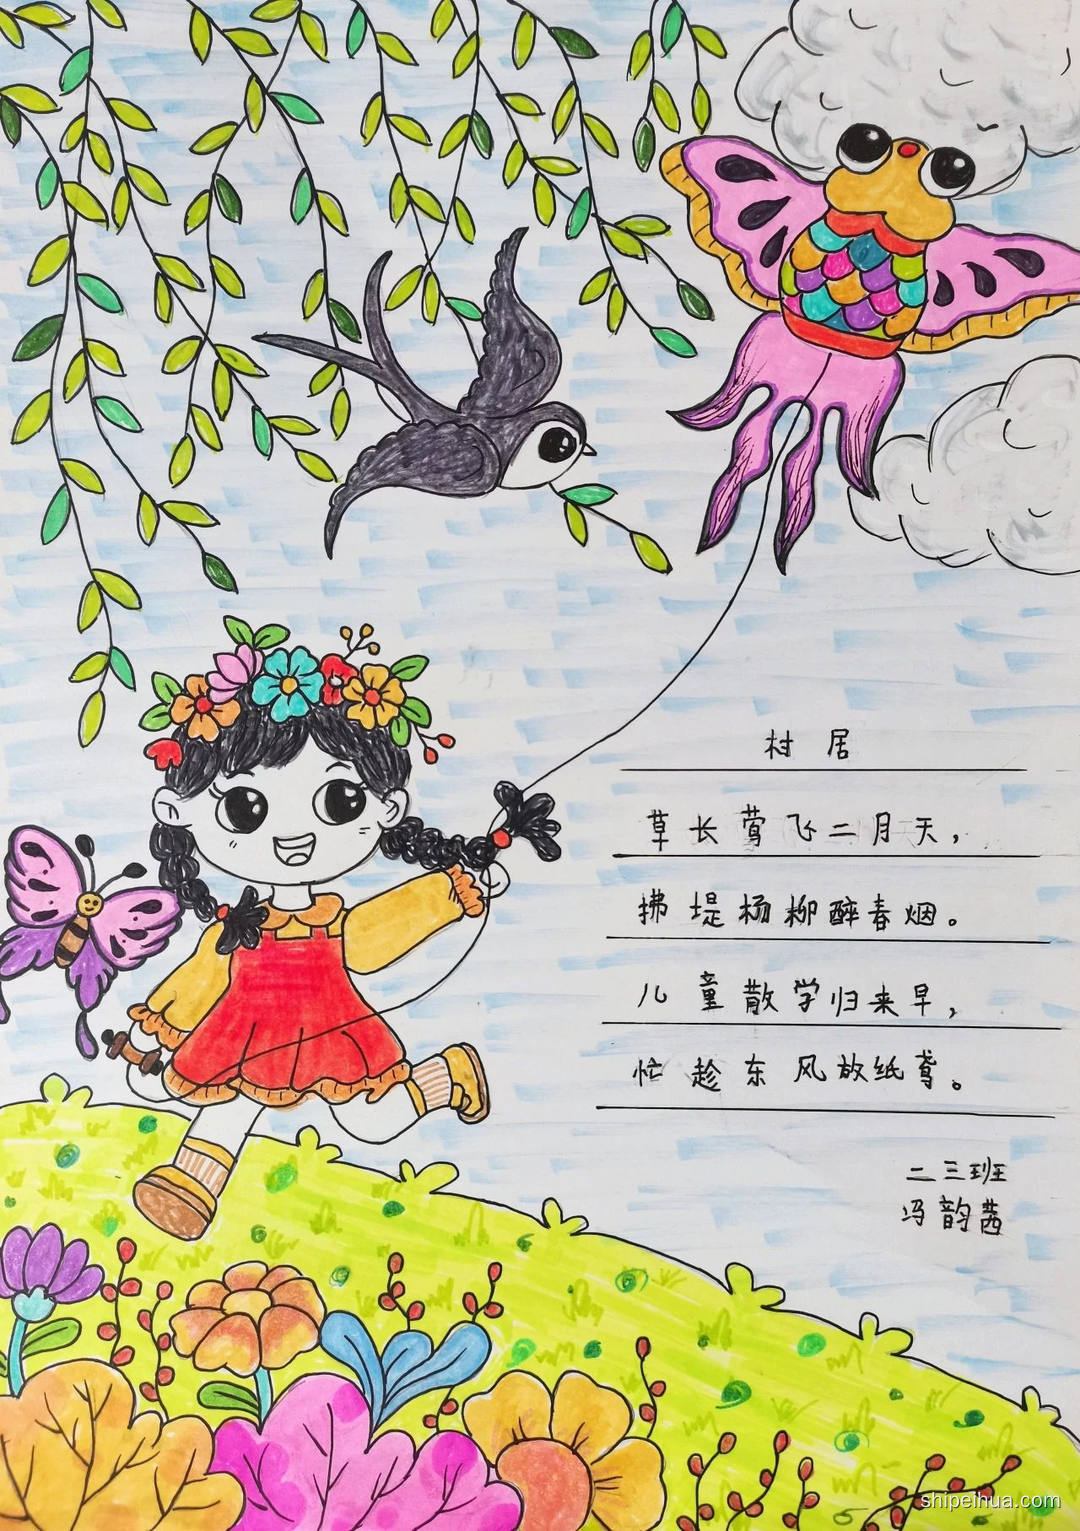 村居
草长莺飞二月天，
拂堤杨柳醉春烟。
儿童散学归来早，
忙趁东风放纸鸢。
二三班
冯韵茜
shipeihua.com